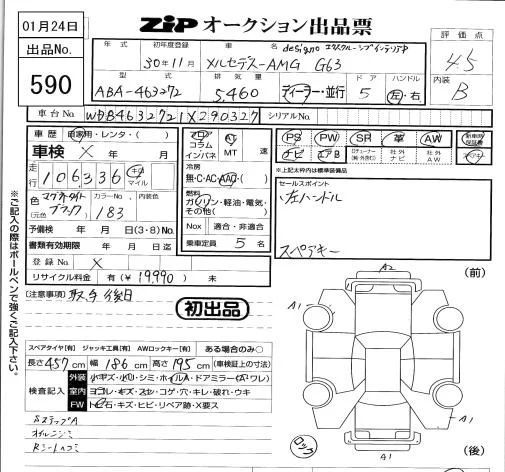 01月24日
ZIP オークション出品票
評価点
4.5
出品No.
590
年式
初年度登録
30年11月
車名
designo エクスクルーシブインテリアP
メルセデス-AMG G63
内装
B
型式
ABA-463272
排気量
5,460
ディーラー・並行
ドア
5
ハンドル
左・右
車台No. WDB4632721X290327
シリアルNo.
車歴 自家用・レンタ・( )
車検 X 年 月
走行 106,336 キロ マイル
色 マグネタイトブラック
(元色)
カラーNo. 183
内装色
予備検 年 月 日(3・8)No.
書類有効期限 年 月 日迄
登録No. X
リサイクル料金 有(¥19,990) 未
フロア コラム インパネ
AT MT 速
冷房
無・C・AC・AAC・( )
燃料
ガソリン・軽油・電気・その他( )
Nox 適合・非適合
乗車定員 5 名
PS PW SR 革 AW
ナビ エアB
社外ナビ
社外AW
新車時保証書
*上記太枠内は標準装備品
セールスポイント
左ハンドル
スペアキー
(注意事項) 取手後日
初出品
スペアタイヤ[有] ジャッキ工具[有] AWロックキー[有] ある場合のみ○
長さ457cm 幅186cm 高さ195cm(車検証上の寸法)
検査記入
外装
室内 ヨゴレ・キズ・スレ・コゲ・穴・キレ・破れ・ウキ
FW トビ石・キズ・ヒビ・リペア跡・X要ス
SステップA
オイルニジミ
※ご記入の際はボールペンで強くご記入下さい。
(前)
A2
A1
A1
A1
A1
ロック
(後)